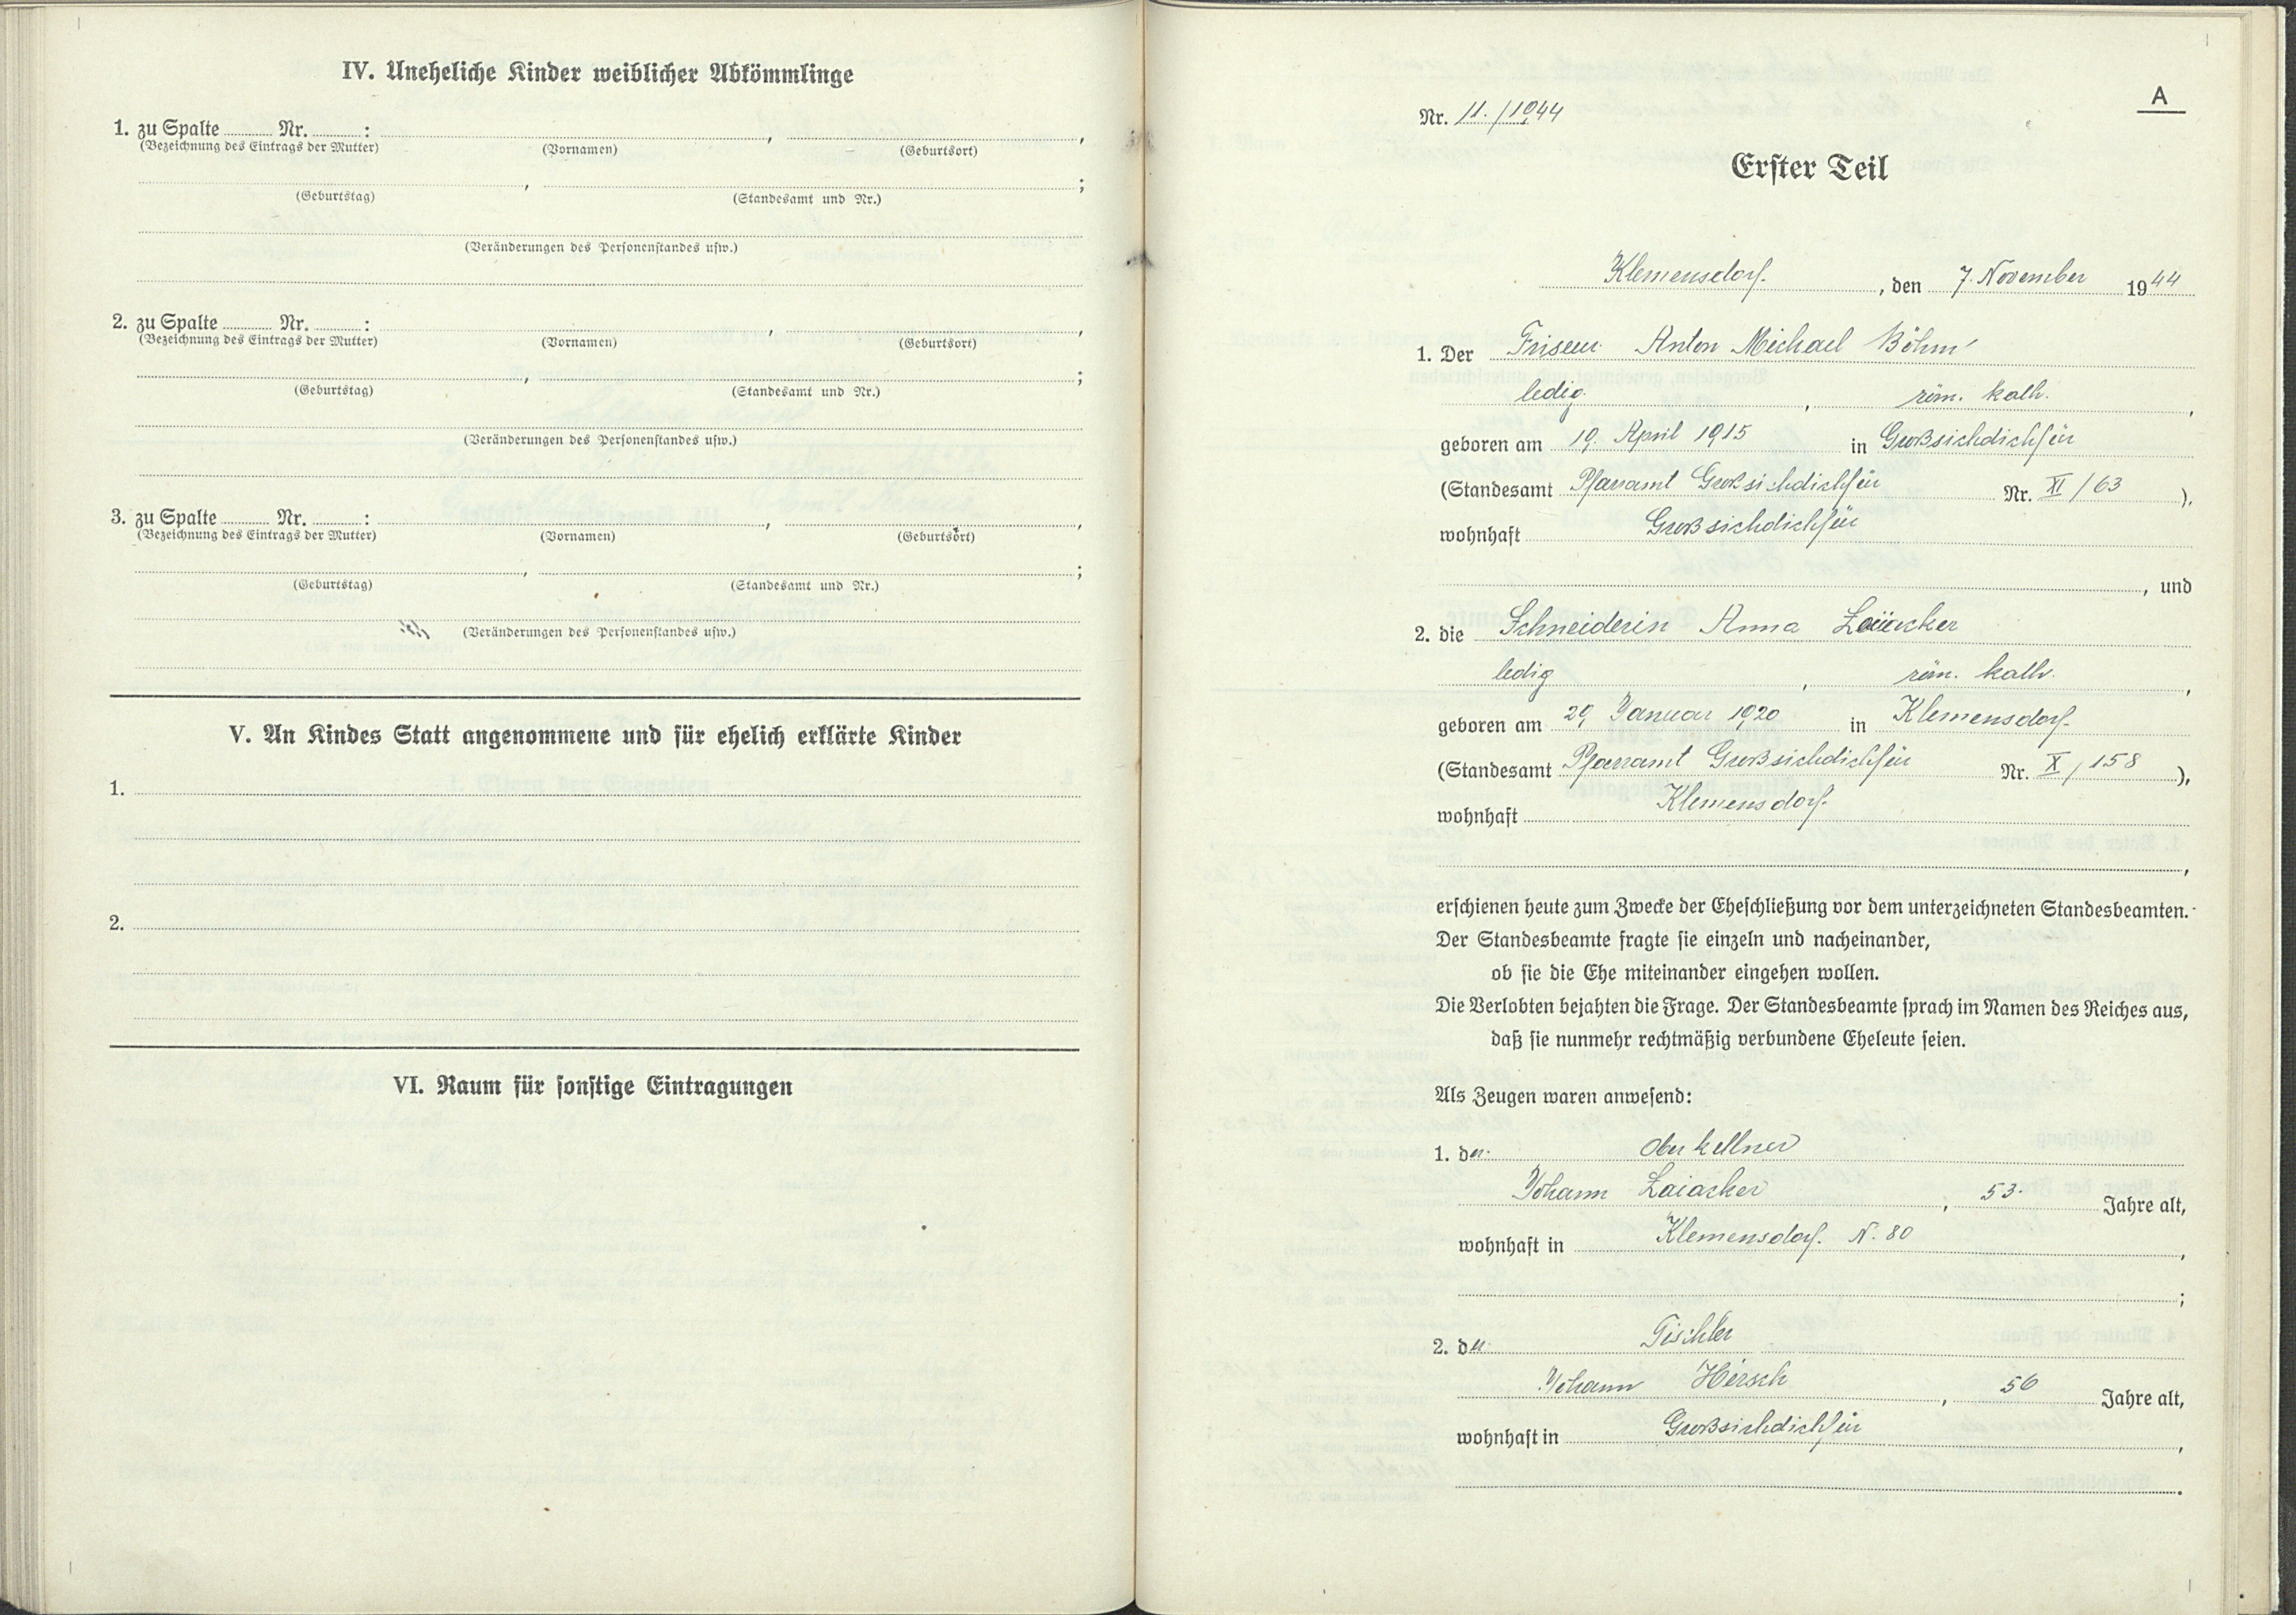 IV. Uneheliche Kinder weiblicher Abkömmlinge
1. zu Spalte ........ Nr. ........ : ........ , ........ ,
(Bezeichnung des Eintrags der Mutter) (Vornamen) (Geburtsort)
........ , ........ ;
(Geburtstag) (Standesamt und Nr.)
(Veränderungen des Personenstandes usw.)
2. zu Spalte ........ Nr. ........ : ........ , ........ ,
(Bezeichnung des Eintrags der Mutter) (Vornamen) (Geburtsort)
........ , ........ ;
(Geburtstag) (Standesamt und Nr.)
(Veränderungen des Personenstandes usw.)
3. zu Spalte ........ Nr. ........ : ........ , ........ ,
(Bezeichnung des Eintrags der Mutter) (Vornamen) (Geburtsort)
........ , ........ ;
(Geburtstag) (Standesamt und Nr.)
(Veränderungen des Personenstandes usw.)
V. An Kindes Statt angenommene und für ehelich erklärte Kinder
1.
2.
VI. Raum für sonstige Eintragungen
A
Nr. 11./1944
Erster Teil
Klemensdorf. , den 7. November 1944
1. Der Friseur Anton Michael Böhm
ledig. , röm. kath. ,
geboren am 19. April 1915 in Großsichdichfür
(Standesamt Pfarramt Großsichdichfür Nr. XI / 63 ),
wohnhaft Großsichdichfür
, und
2. die Schneiderin Anna
ledig , röm. kath. ,
geboren am 29. Januar 1920 in Klemensdorf.
(Standesamt Pfarramt Großsichdichfür Nr. X / 158 ),
wohnhaft Klemensdorf.
,
erschienen heute zum Zwecke der Eheschließung vor dem unterzeichneten Standesbeamten.
Der Standesbeamte fragte sie einzeln und nacheinander,
ob sie die Ehe miteinander eingehen wollen.
Die Verlobten bejahten die Frage. Der Standesbeamte sprach im Namen des Reiches aus,
daß sie nunmehr rechtmäßig verbundene Eheleute seien.
Als Zeugen waren anwesend:
1. der Oberkellner
Johann Laiacker , 53. Jahre alt,
wohnhaft in Klemensdorf. N. 80 ,
;
2. der Tischler
Johann Hirsch , 56 Jahre alt,
wohnhaft in Großsichdichfür ,
.